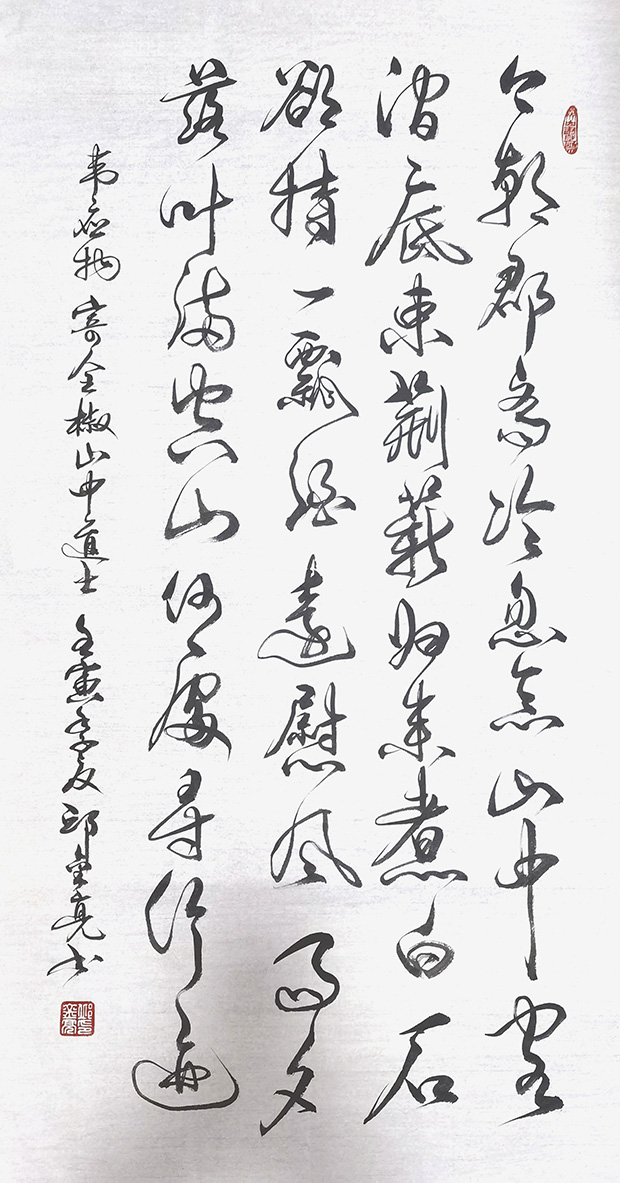 今朝郡斋冷忽念山中客
涧底束荆薪归来煮白石
欲持一瓢酒遠慰风雨夕
落叶满空山何處寻行迹
韦应物 寄全椒山中道士 壬寅季夏 邱亮书